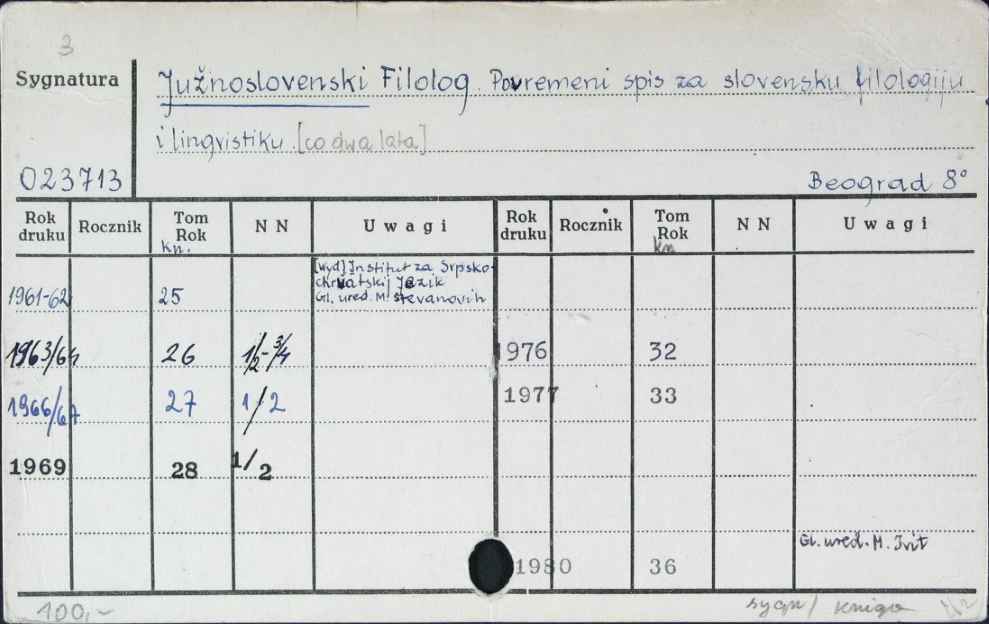 3
Sygnatura
Južnoslovenski Filolog. Povremeni spis za slovensku filologiju
i lingvistiku. [co dwa lata]
023713
Beograd 8°
Rok druku Rocznik Tom Rok kn. N N Uwagi Rok druku Rocznik Tom Rok kn N N Uwagi
[wyd] Institut za Srpsko-
chrvatskij Jezik
1961-62 25 Gl. ured. M. Stevanovih
1963/64 26 1/2-3/4 1976 32
1966/67 27 1/2 1977 33
1969 28 1/2
Gl. ured. M. Ivit
1980 36
100,- sygn/ kniga